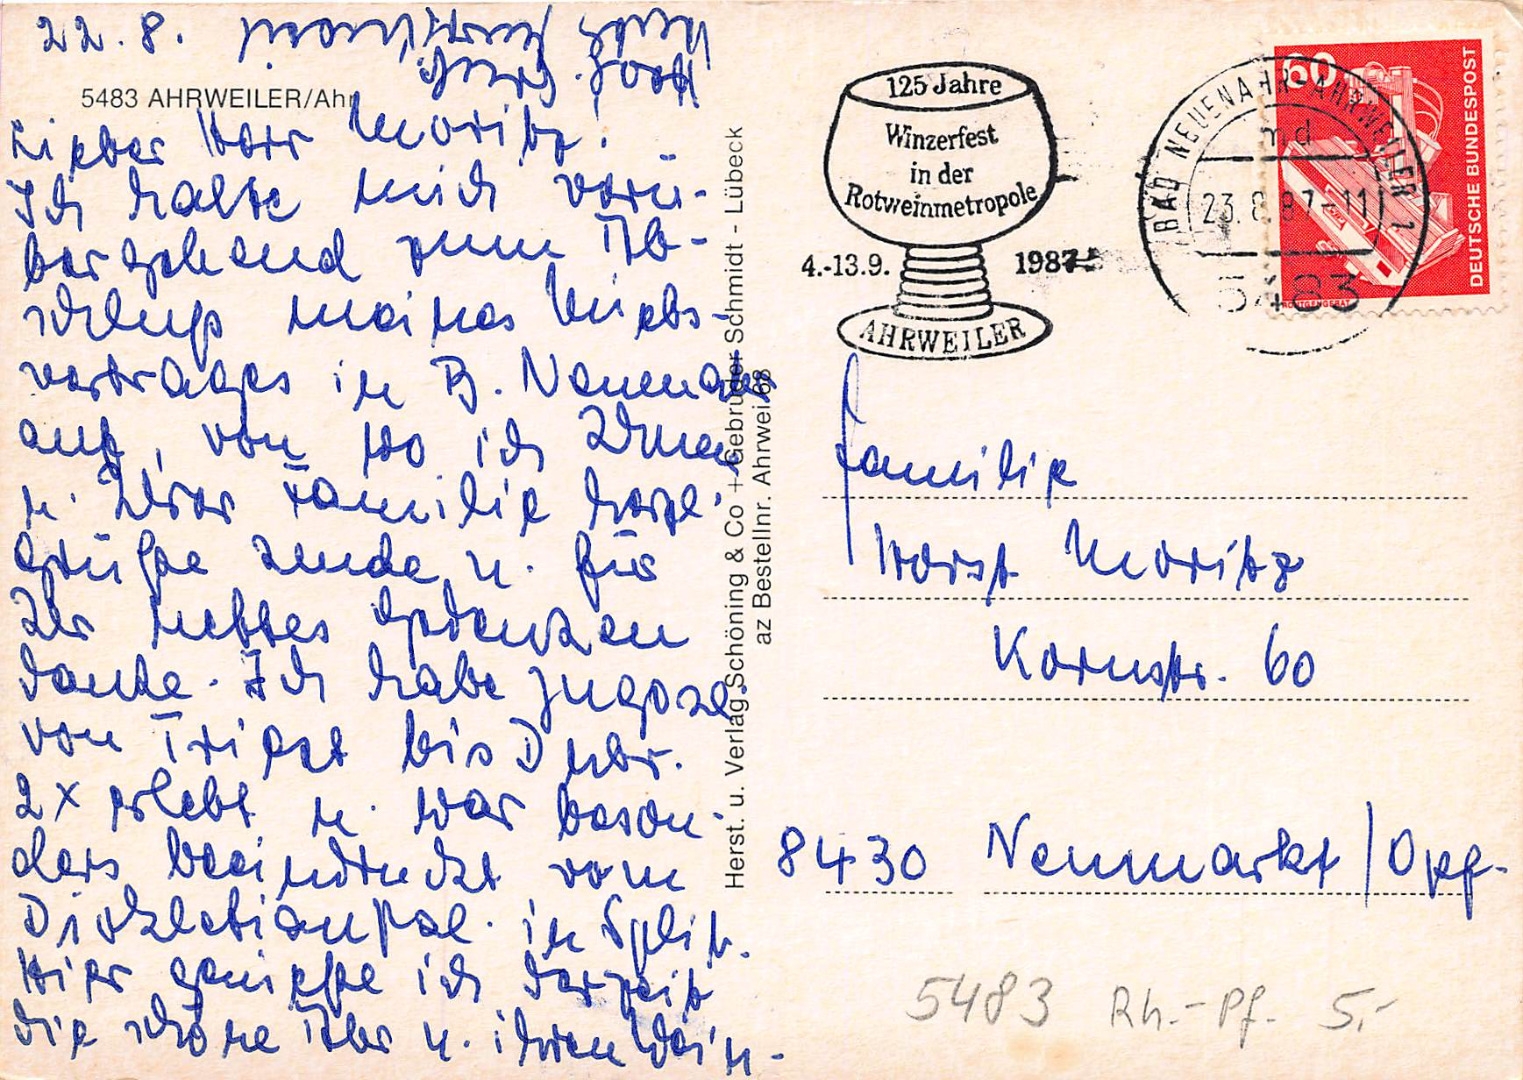 22. 8.
5483 AHRWEILER/Ahr
Lieber Herr Moritz!
Ich halte mich vorü-
bergehend zum Ab-
schluß meines Miets-
vertrages in B. Neuenahr
auf, von wo ich Ihnen
u. Ihrer Familie herzl.
Grüße sende u. für
Ihr nettes Gedenken
danke. Ich habe Jugosl.
von Triest bis Dubr.
2x erlebt u. war beson-
ders beeindruckt vom
Diokletianpal. in Split.
Hier genieße ich derzeit
die schöne Ahr u. ihren Wein.
Herst. u. Verlag Schöning & Co + Gebrüder Schmidt - Lübeck
az Bestellnr. Ahrwei 68
125 Jahre
Winzerfest
in der
Rotweinmetropole
4.-13.9. 1987
AHRWEILER
BAD NEUENAHR-AHRWEILER 1
md
23.8.87-11
5483
60
DEUTSCHE BUNDESPOST
Familie
Horst Moritz
Kornstr. 60
8430 Neumarkt/Opf.
5483 Rh.-Pf. 5,-